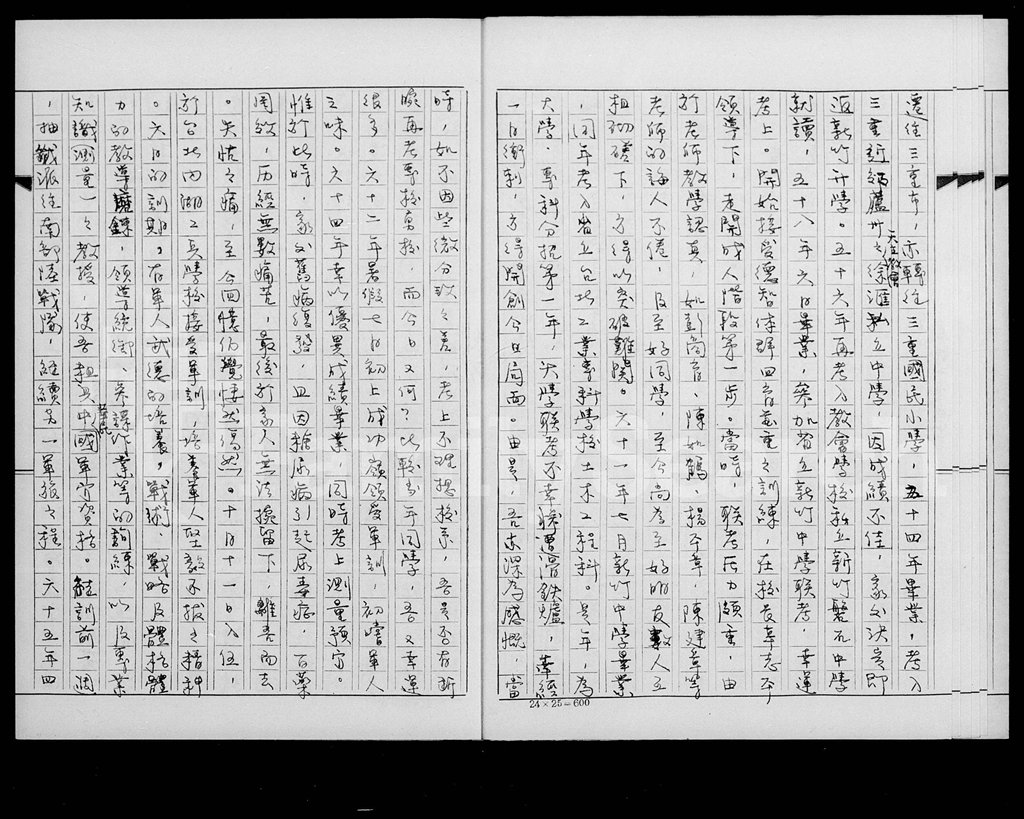 遷往三重市，亦轉往三重國民小學，五十四年畢業，考入
三重新紀蘆州之天主教會徐滙私立中學，因成績不佳，家父決定即
返新竹升學。五十六年再考入教會學校私立新竹磐石中學
就讀，五十八年六月畢業，參加省立新竹中學聯考，幸運
考上。開始接受德智体群四育並重之訓練，在校長辛志平
領導下，走開成人階段第一步。當時，聯考压力頗重，由
於老師教學認真，如彭商育、陳如鶴、楊不草、陳建章等
老師的誨人不倦，及至好同學，至今尚為至好朋友數人互
相切磋下，方得以突破難關。六十一年七月新竹中學畢業
，同年考入省立台北工業專科學校土木工程科。是年，為
大學、專科分招第一年，大學聯考不幸慘遭滑鉄爐，幸經
一日衝刺，方得開創今日局面。由是，吾亦深為感慨，當
時，如不因些微分數之差，考上不理想校系，吾是否有斷
腕再考專校勇校，而今日又何？比較当年同學，吾又幸運
很多。六十二年暑假七月初上成功嶺領受軍訓，初嚐軍人
之味。六十四年幸以優異成績畢業，同時考上測量預官。
惟於此時，家父舊病復發，且因糖尿病引起尿毒症，百藥
罔效，历經無數痛苦，最後於家人無法挽留下，離吾而去
。失怙之痛，至今回憶仍覺悽然傷然。十月十一日入伍，
於台北內湖工兵學校接受軍訓，培養軍人堅毅不拔之精神
。六月的訓期，有軍人武德的培養，戰術、戰略及體格體
力的教導鍾錬，領導統御、參謀作業等的訓練，以及專業
知識（測量）之教授，使吾粗具中華民國軍官資格。結訓前一週
，抽籤派往南部陸戰隊，繼續另一軍旅之程。六十五年四
24×25=600